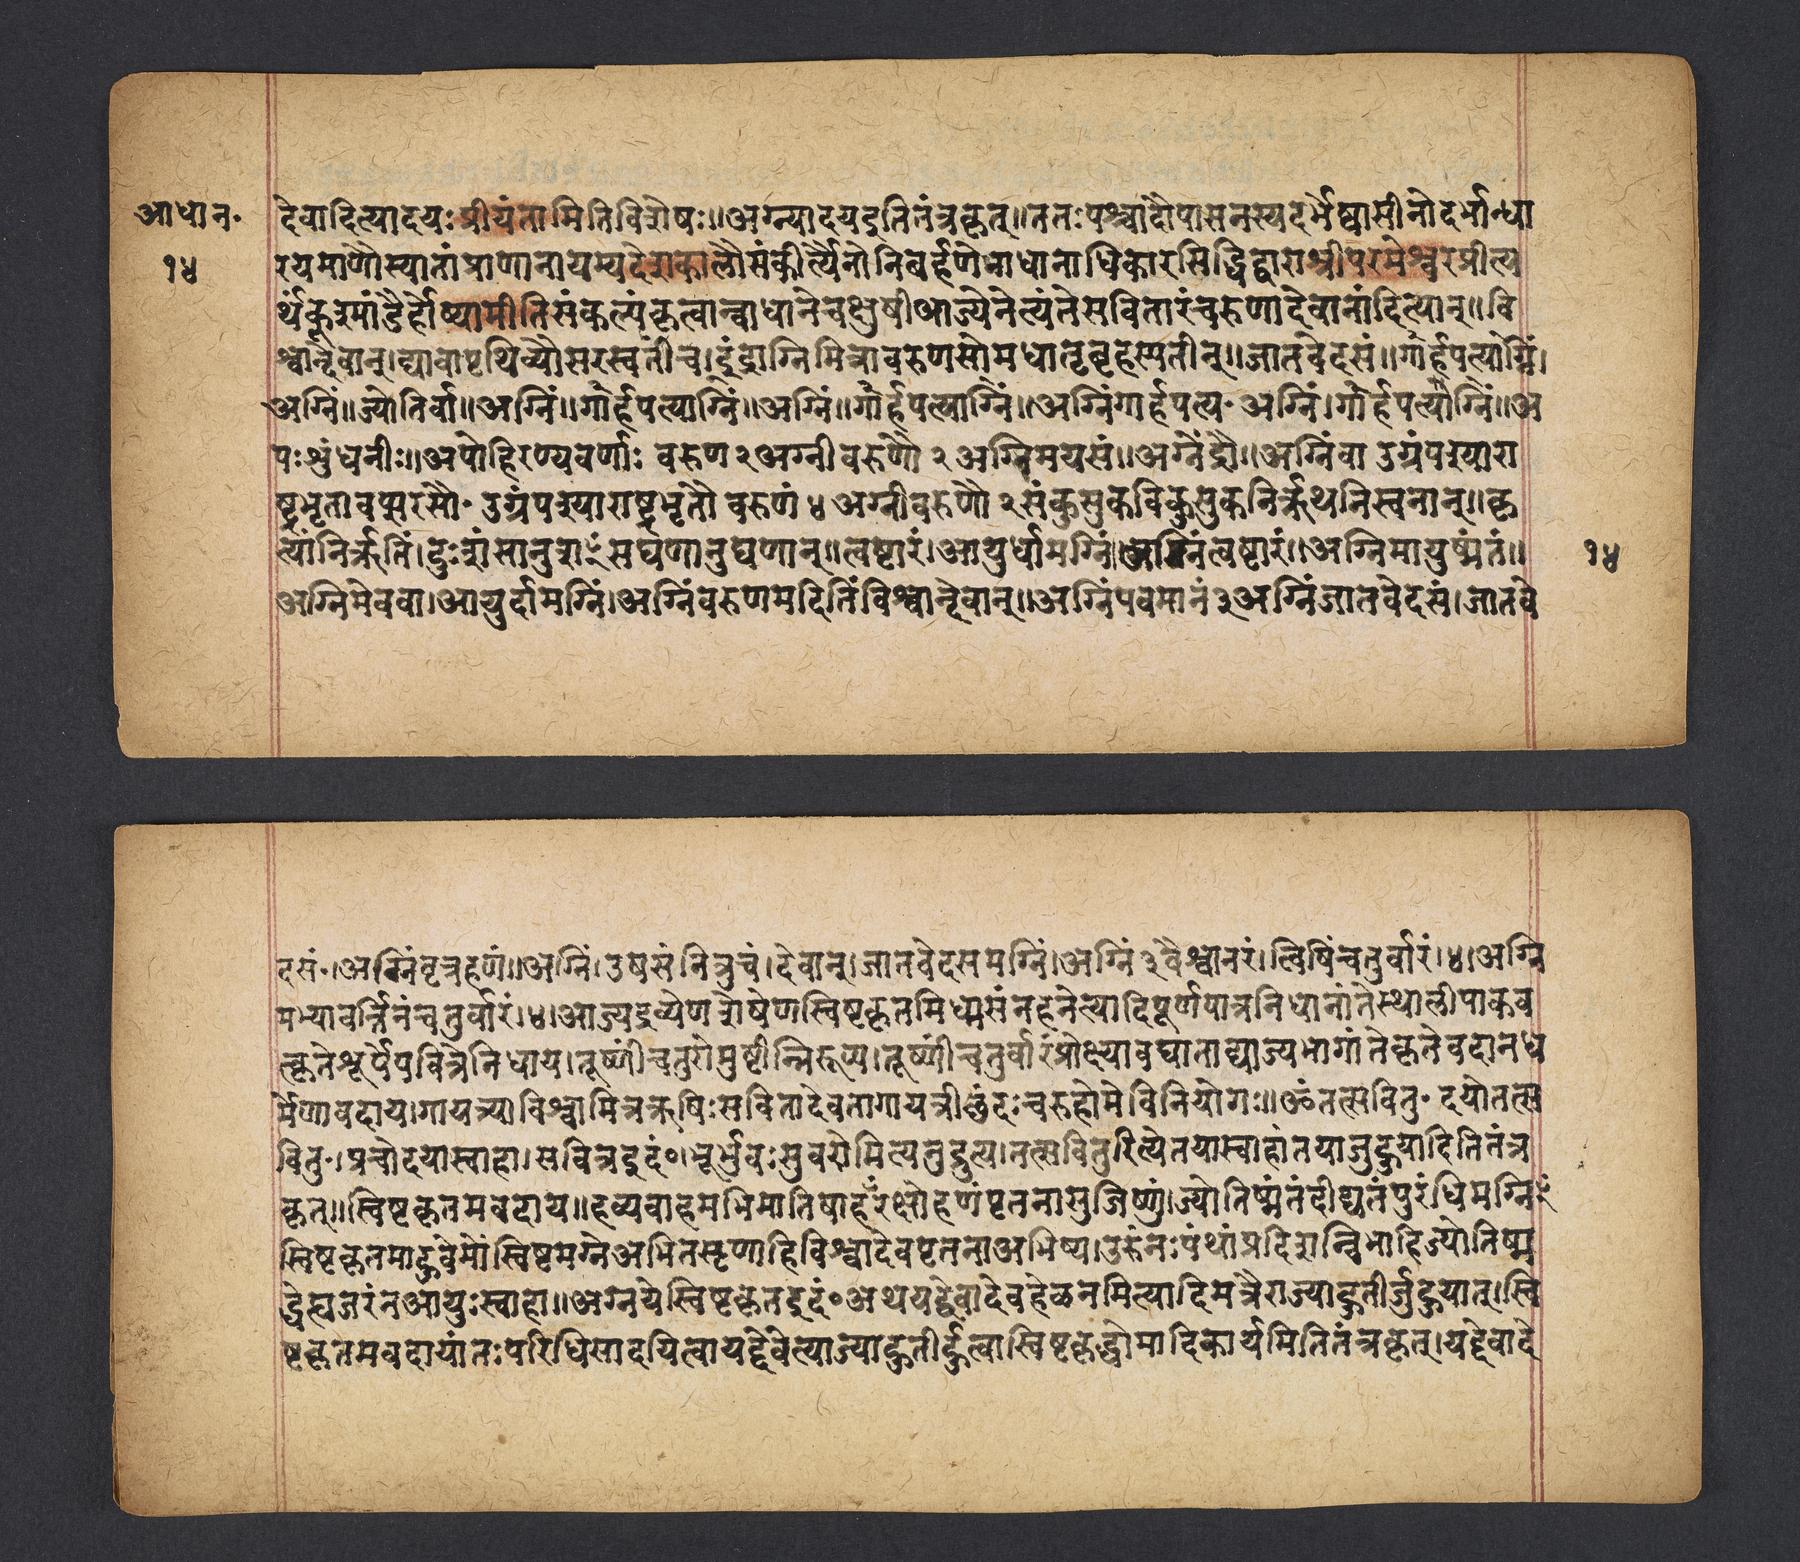 आधान॰
१४
देवादित्यादयःप्रीयंतामितिविशेषः॥अग्न्यादयइतितंत्रकृत्॥ततःपश्चादौपासनस्यदर्भेष्वासीनोदर्भान्धा
रयमाणौस्यातांप्राणानायम्यदेशकालौसंकीर्त्यैनोनिबर्हणेनाधानाधिकारसिद्धिद्वाराश्रीपरमेश्वरप्रीत्य
र्थंकूश्मांडैर्होष्यामीतिसंकल्पंकृत्वान्वाधानेचक्षुषीआज्येनेत्यंतेसवितारंचरुणादेवानादित्यान्॥वि
श्वान्देवान्।द्यावापृथिव्यौसरस्वतींच।इंद्राग्निमित्रावरुणसोमधातृबृहस्पतीन्॥जातवेदसं॥गार्हपत्याग्निं।
अग्निं॥ज्योतिर्वा॥अग्निं॥गार्हपत्याग्निं॥अग्निं॥गार्हपत्याग्निं॥अग्निंगार्हपत्य॰अग्निं।गार्हपत्याग्निं॥अ
पःशुंधनीः॥अपोहिरण्यवर्णाः वरुण२अग्नीवरुणौ २ अग्निमयसं॥अग्नेंद्रौ॥अग्निंवा उग्रंपश्यारा
ष्ट्रभृतावप्सरसौ॰ उग्रंपश्याराष्ट्रभृतौ वरुणं ४ अग्नीवरुणौ २संकुसुकविकुसुकनिर्ऋथनिस्वनान्॥कृ
त्यांनिर्ऋतिं।दुःशंसानुशꣳसघणानुघणान्॥त्वष्टारं।आयुर्धामग्निं॥अग्निंत्वष्टारं॥अग्निमायुष्मंतं॥
१४
अग्निमेववा।आयुर्दामग्निं।अग्निंवरुणमदितिंविश्वान्देवान्॥अग्निंपवमानं३अग्निंजातवेदसं।जातवे
दसं॰।अग्निंवृत्रहणं॥अग्निं।उषसंनिम्रुचं।देवान्।जातवेदसमग्निं।अग्निं३वैश्वानरं।त्विषिंचतुर्वारं।४।अग्नि
मभ्यावर्त्तिनंचतुर्वारं।४।आज्यद्रव्येणशेषेणस्विष्टकृतमिध्मसंनहनेत्यादिपूर्णपात्रनिधानांतेस्थालीपाकव
त्कृतेशूर्पेपवित्रेनिधाय।तूष्णींचतुरोमुष्टीन्निरूप्य।तूष्णींचतुर्वारंप्रोक्ष्यावघाताद्याज्यभागांतेकृतेवदानध
र्मेणावदाय।गायत्र्याविश्वामित्रऋषिःसवितादेवतागायत्रीछंदःचरुहोमेविनियोगः॥ॐतत्सवितु॰ दयोतत्स
वितु॰।प्रचोदयास्वाहा।सवित्रइदं०।भूर्भुवःसुवरोमित्यनुद्रुत्य।तत्सवितुरित्येतयास्वाहांतयाजुहुयादितितंत्र
कृत्॥स्विष्टकृतमवदाय॥हव्यवाहमभिमातिषाहꣳरक्षोहणंपृतनासुजिष्णुं।ज्योतिष्मंतंदीद्यतंपुरंधिमग्निꣳ
स्विष्टकृतमाहुवेमों३स्विष्टमग्नेअभितत्पृणाहिविश्वादेवपृतनाअभिष्य।उरुंनःपंथांप्रदिशन्विभाहिज्योतिष्म
द्धेह्यजरंनआयुःस्वाहा॥अग्नयेस्विष्टकृतइदं०अथयद्देवादेवहेळनमित्यादिमंत्रैराज्याहुतीर्जुहुयात्।स्वि
ष्टकृतमवदायांतःपरिधिसादयित्वायद्देवेत्याज्याहुतीर्हुत्वास्विष्टकृद्धोमादिकार्यमितितंत्रकृत्।यद्देवादे